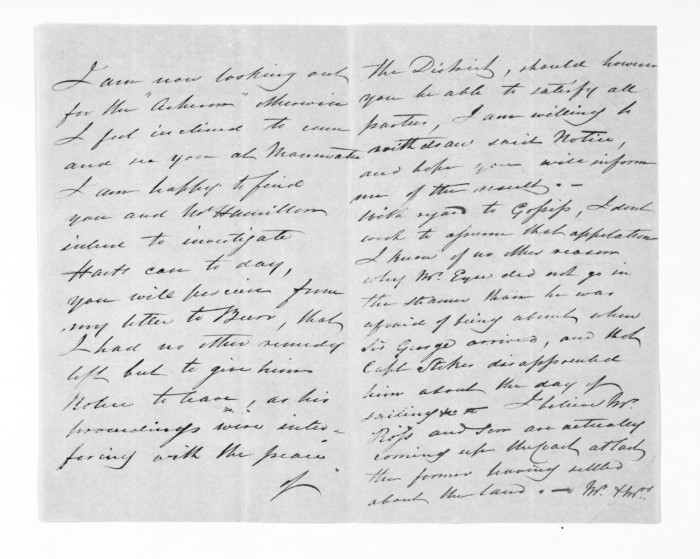 I am now looking out
for the "Acheron" otherwise
I feel inclined to come
and see you at Manawatu
I am happy to find
you and Mr Hamilton
intend to investigate
Harts case to day,
you will perceive from
my letter to Burr, that
I had no other remedy
left but to give him
Notice to leave, as his
proceedings were inter-
fering with the peace
of
the District, should however
you be able to satisfy all
parties, I am willing to
withdraw said Notice,
and hope you will inform
me of the result. -
With regard to Gossip, I dont
wish to assume that appelation
I know of no other reason
why Mr. Eyre did not go in
the steamer than he was
afraid of being absent when
Sir George arrived, and that
Capt Stokes disappointed
him about the day of
sailing I believe Mr.
Ross and Son are actually
coming up the Coast at last
the former having settled
about the land. - Mr. & Mrs.